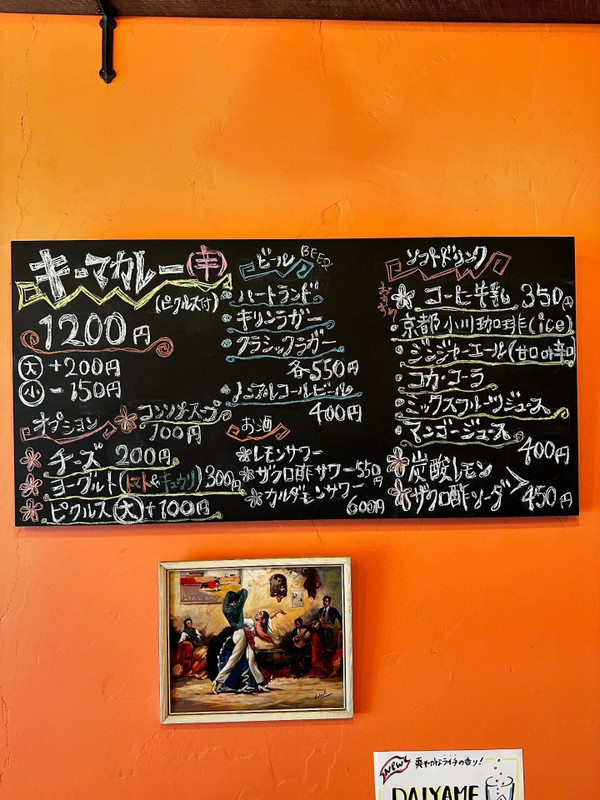 キーマカレー(辛)
(ピクルス付)
1200円
大 +200円
小 -150円
オプション
コンソメスープ
100円
チーズ 200円
ヨーグルト(トマト&キュウリ) 300円
ピクルス(大)+100円
ビール BEER
ハートランド
キリンラガー
クラシックラガー
各550円
ノンアルコールビール
400円
お酒
レモンサワー
ザクロ酢サワー 550円
カルダモンサワー
600円
ソフトドリンク
おすすめ
コーヒー牛乳 350円
京都小川珈琲(ice)
ジンジャーエール(甘口or辛口)
コカ・コーラ
ミックスフルーツジュース
マンゴージュース
400円
炭酸レモン
ザクロ酢ソーダ > 450円
NEW
爽やかなライチの香り!
DAIYAME